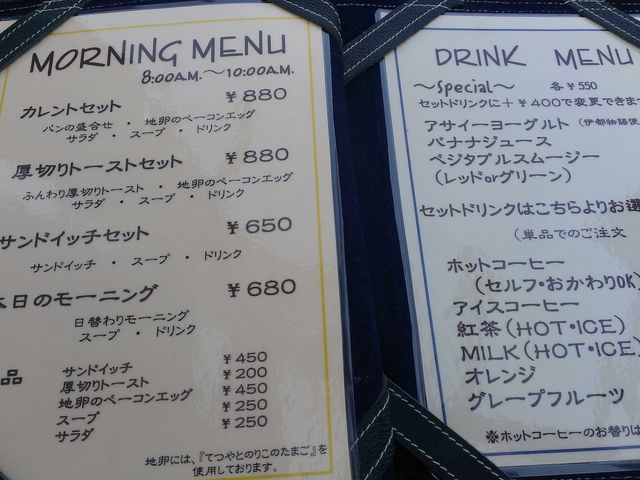 MORNING MENU
8:00A.M.〜10:00A.M.
カレントセット ¥880
パンの盛合せ ・ 地卵のベーコンエッグ
サラダ ・ スープ ・ ドリンク
厚切りトーストセット ¥880
ふんわり厚切りトースト ・ 地卵のベーコンエッグ
サラダ ・ スープ ・ ドリンク
サンドイッチセット ¥650
サンドイッチ ・ スープ ・ ドリンク
本日のモーニング ¥680
日替わりモーニング
スープ ・ ドリンク
品
サンドイッチ ¥450
厚切りトースト ¥200
地卵のベーコンエッグ ¥450
スープ ¥250
サラダ ¥250
地卵には、『てつやとのりこのたまご』を
使用しております。
DRINK MENU
〜Special〜 各¥550
セットドリンクに+¥400で変更できま
アサイーヨーグルト(伊都物語使
バナナジュース
ベジタブルスムージー
(レッドorグリーン)
セットドリンクはこちらよりお選
(単品でのご注文
ホットコーヒー
(セルフ・おかわりOK)
アイスコーヒー
紅茶(HOT・ICE)
MILK(HOT・ICE)
オレンジ
グレープフルーツ
※ホットコーヒーのお替りは